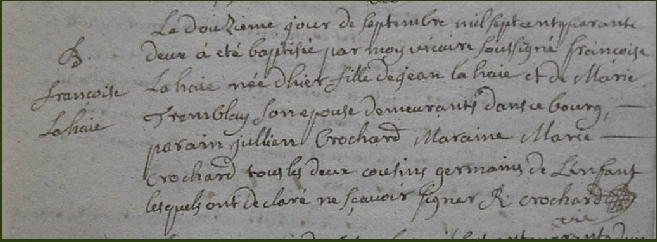 Le douzieme jour de septembre mil sept cent quarante
B. deux á eté baptisée par moy vicaire soussigné françoise
françoise La haie née d'hier fille de jean la haie et de Marie
La haie Tremblay son epouse demeurants dans ce bourg,
parain jullien Crochard Maraine Marie
Crochard tous les deux cousins germains de L'enfant
lesquels ont declaré ne sçavoir signer R crochard
vic